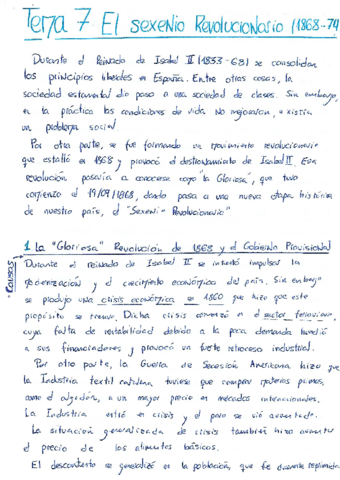 Tema 7 El sexenio Revolucionario (1868-74
Durante el Reinado de Isabel II (1833-68) se consolidan
los principios liberales en España. Entre otras cosas, la
sociedad estamental dio paso a una sociedad de clases. Sin embargo,
en la práctica las condiciones de vida no mejoraron, existía
un problema social
Por otra parte, se fue formando un movimiento revolucionario
que estalló en 1868 y provocó el destronamiento de Isabel II. Esa
revolución pasaría a conocerse como "la Gloriosa", que tuvo
comienzo el 19/09/1868, dando paso a una nueva etapa histórica
de nuestro país, el "Sexenio Revolucionario"
1 La "Gloriosa" Revolución de 1868 y el Gobierno Provisional
Causas
Durante el reinado de Isabel II se intentó impulsar la
modernización y el crecimiento económico del país. Sin embargo
se produjo una crisis económica en 1860 que hizo que este
propósito se truncara. Dicha crisis comenzó en el sector ferroviario,
cuya falta de rentabilidad debido a la poca demanda hundió
a sus financiadores y provocó un fuerte retroceso industrial.
Por otra parte, la Guerra de Secesión Americana hizo que
la Industria textil catalana tuviese que comprar materias primas,
como el algodón, a un mayor precio en mercados internacionales.
La Industria entró en crisis y el paro se vió aumentado.
La situación generalizada de crisis también hizo aumentar
el precio de los alimentos básicos.
El descontento se generalizó en la población, que fue duramente reprimida